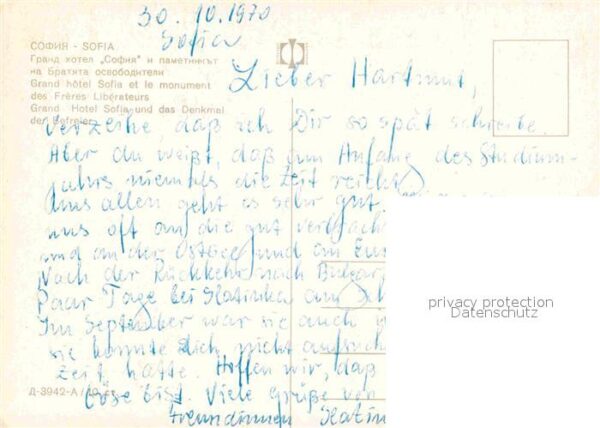 30.10.1970
Sofia
СОФИЯ - SOFIA
Гранд хотел „София" и паметникът
на Братята освободители
Grand hôtel Sofia et le monument
des Frères Libérateurs
Grand Hotel Sofia und das Denkmal
der Befreier
Lieber Hartmut,
Verzeihe, daß ich Dir so spät schreibe.
Aber du weißt, daß am Anfang des Studium-
jahrs niemals die Zeit reicht
Uns allen geht es sehr gut
uns oft an die gut verbrach
und an der Ostsee und im
Nach der Rückkehr nach Bulgar
Paar Tage bei Slatinka am Sch
Im September war sie auch
sie konnte Dich nicht aufsuch
Zeit hatte. Hoffen wir, daß
böse bist. Viele Grüße von
Freundinnen Slatin
Д-3942-А
privacy protection
Datenschutz